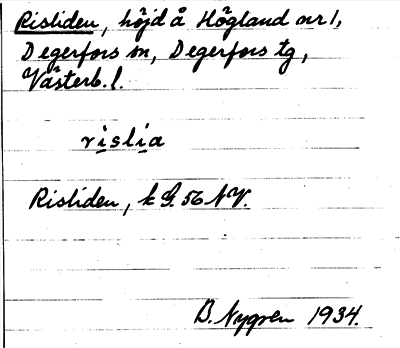 Risliden, höjd å Högland nr 1,
Degerfors sn, Degerfors tg,
Västerb. l.
rislia
Risliden, k G. 56 NV.
B. Nygren 1934.